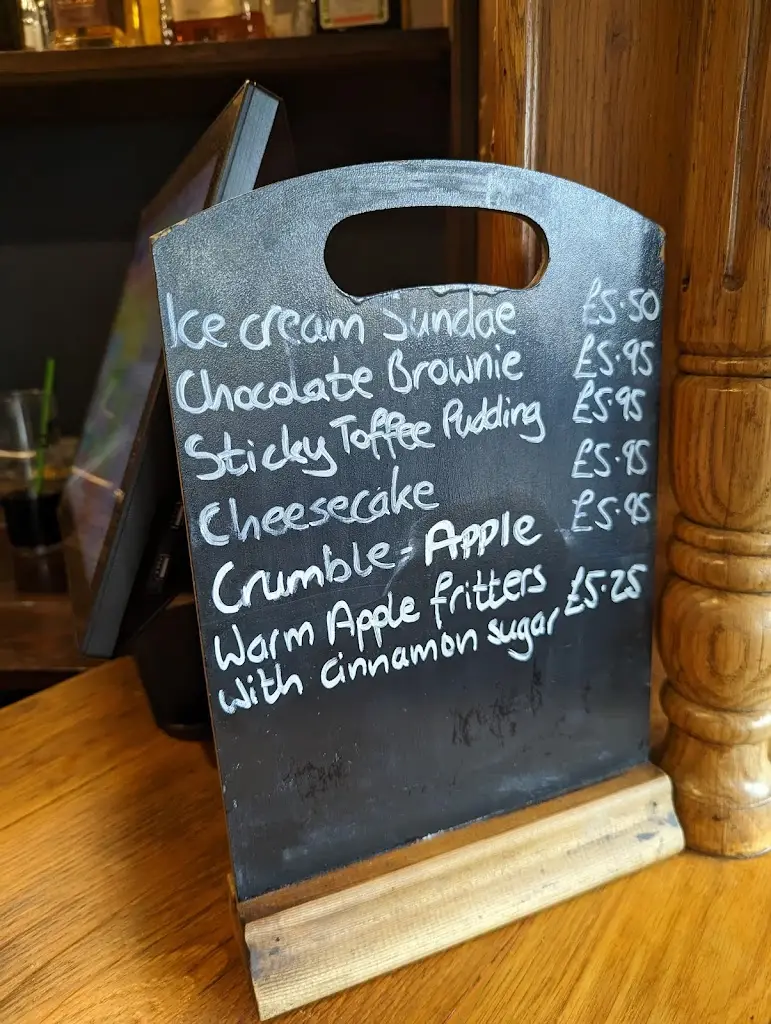 Ice cream Sundae £5.50
Chocolate Brownie £5.95
Sticky Toffee Pudding £5.95
Cheesecake £5.95
Crumble - Apple £5.95
Warm Apple fritters £5.25
with cinnamon sugar